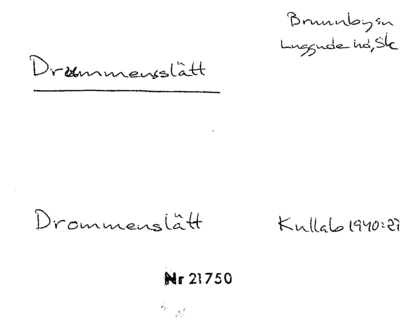 Brunnbyen
Luggude hd, Sk
Drummensslätt
Drommenslätt
Kullab 1940:27
Nr 21750